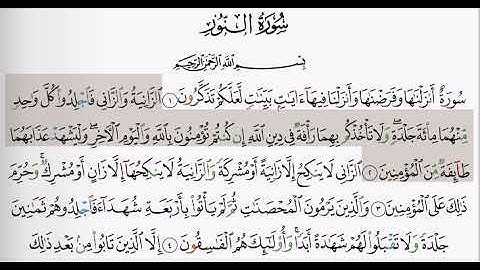 سُورَةُ النُّورِ
بِسْمِ اللَّهِ الرَّحْمَٰنِ الرَّحِيمِ
سُورَةٌ أَنزَلْنَٰهَا وَفَرَضْنَٰهَا وَأَنزَلْنَا فِيهَآ ءَايَٰتٍۭ بَيِّنَٰتٍ لَّعَلَّكُمْ تَذَكَّرُونَ ١ ٱلزَّانِيَةُ وَٱلزَّانِى فَٱجْلِدُوا۟ كُلَّ وَٰحِدٍ
مِّنْهُمَا مِا۟ئَةَ جَلْدَةٍ ۖ وَلَا تَأْخُذْكُم بِهِمَا رَأْفَةٌ فِى دِينِ ٱللَّهِ إِن كُنتُمْ تُؤْمِنُونَ بِٱللَّهِ وَٱلْيَوْمِ ٱلْءَاخِرِ ۖ وَلْيَشْهَدْ عَذَابَهُمَا
طَآئِفَةٌ مِّنَ ٱلْمُؤْمِنِينَ ٢ ٱلزَّانِى لَا يَنكِحُ إِلَّا زَانِيَةً أَوْ مُشْرِكَةً وَٱلزَّانِيَةُ لَا يَنكِحُهَآ إِلَّا زَانٍ أَوْ مُشْرِكٌ ۚ وَحُرِّمَ
ذَٰلِكَ عَلَى ٱلْمُؤْمِنِينَ ٣ وَٱلَّذِينَ يَرْمُونَ ٱلْمُحْصَنَٰتِ ثُمَّ لَمْ يَأْتُوا۟ بِأَرْبَعَةِ شُهَدَآءَ فَٱجْلِدُوهُمْ ثَمَٰنِينَ
جَلْدَةً وَلَا تَقْبَلُوا۟ لَهُمْ شَهَٰدَةً أَبَدًا ۚ وَأُو۟لَٰٓئِكَ هُمُ ٱلْفَٰسِقُونَ ٤ إِلَّا ٱلَّذِينَ تَابُوا۟ مِنۢ بَعْدِ ذَٰلِكَ